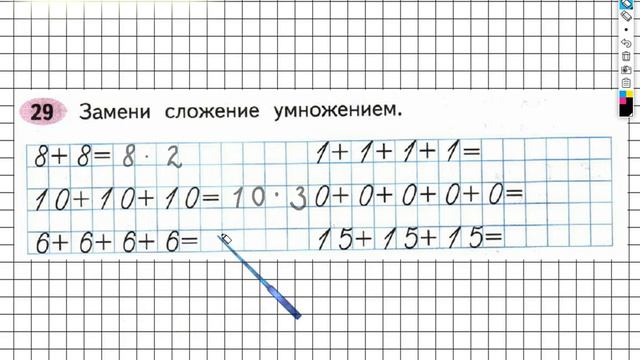 29 Замени сложение умножением.
8+8=8·2 1+1+1+1=
10+10+10=10·3 0+0+0+0+0=
6+6+6+6= 15+15+15=